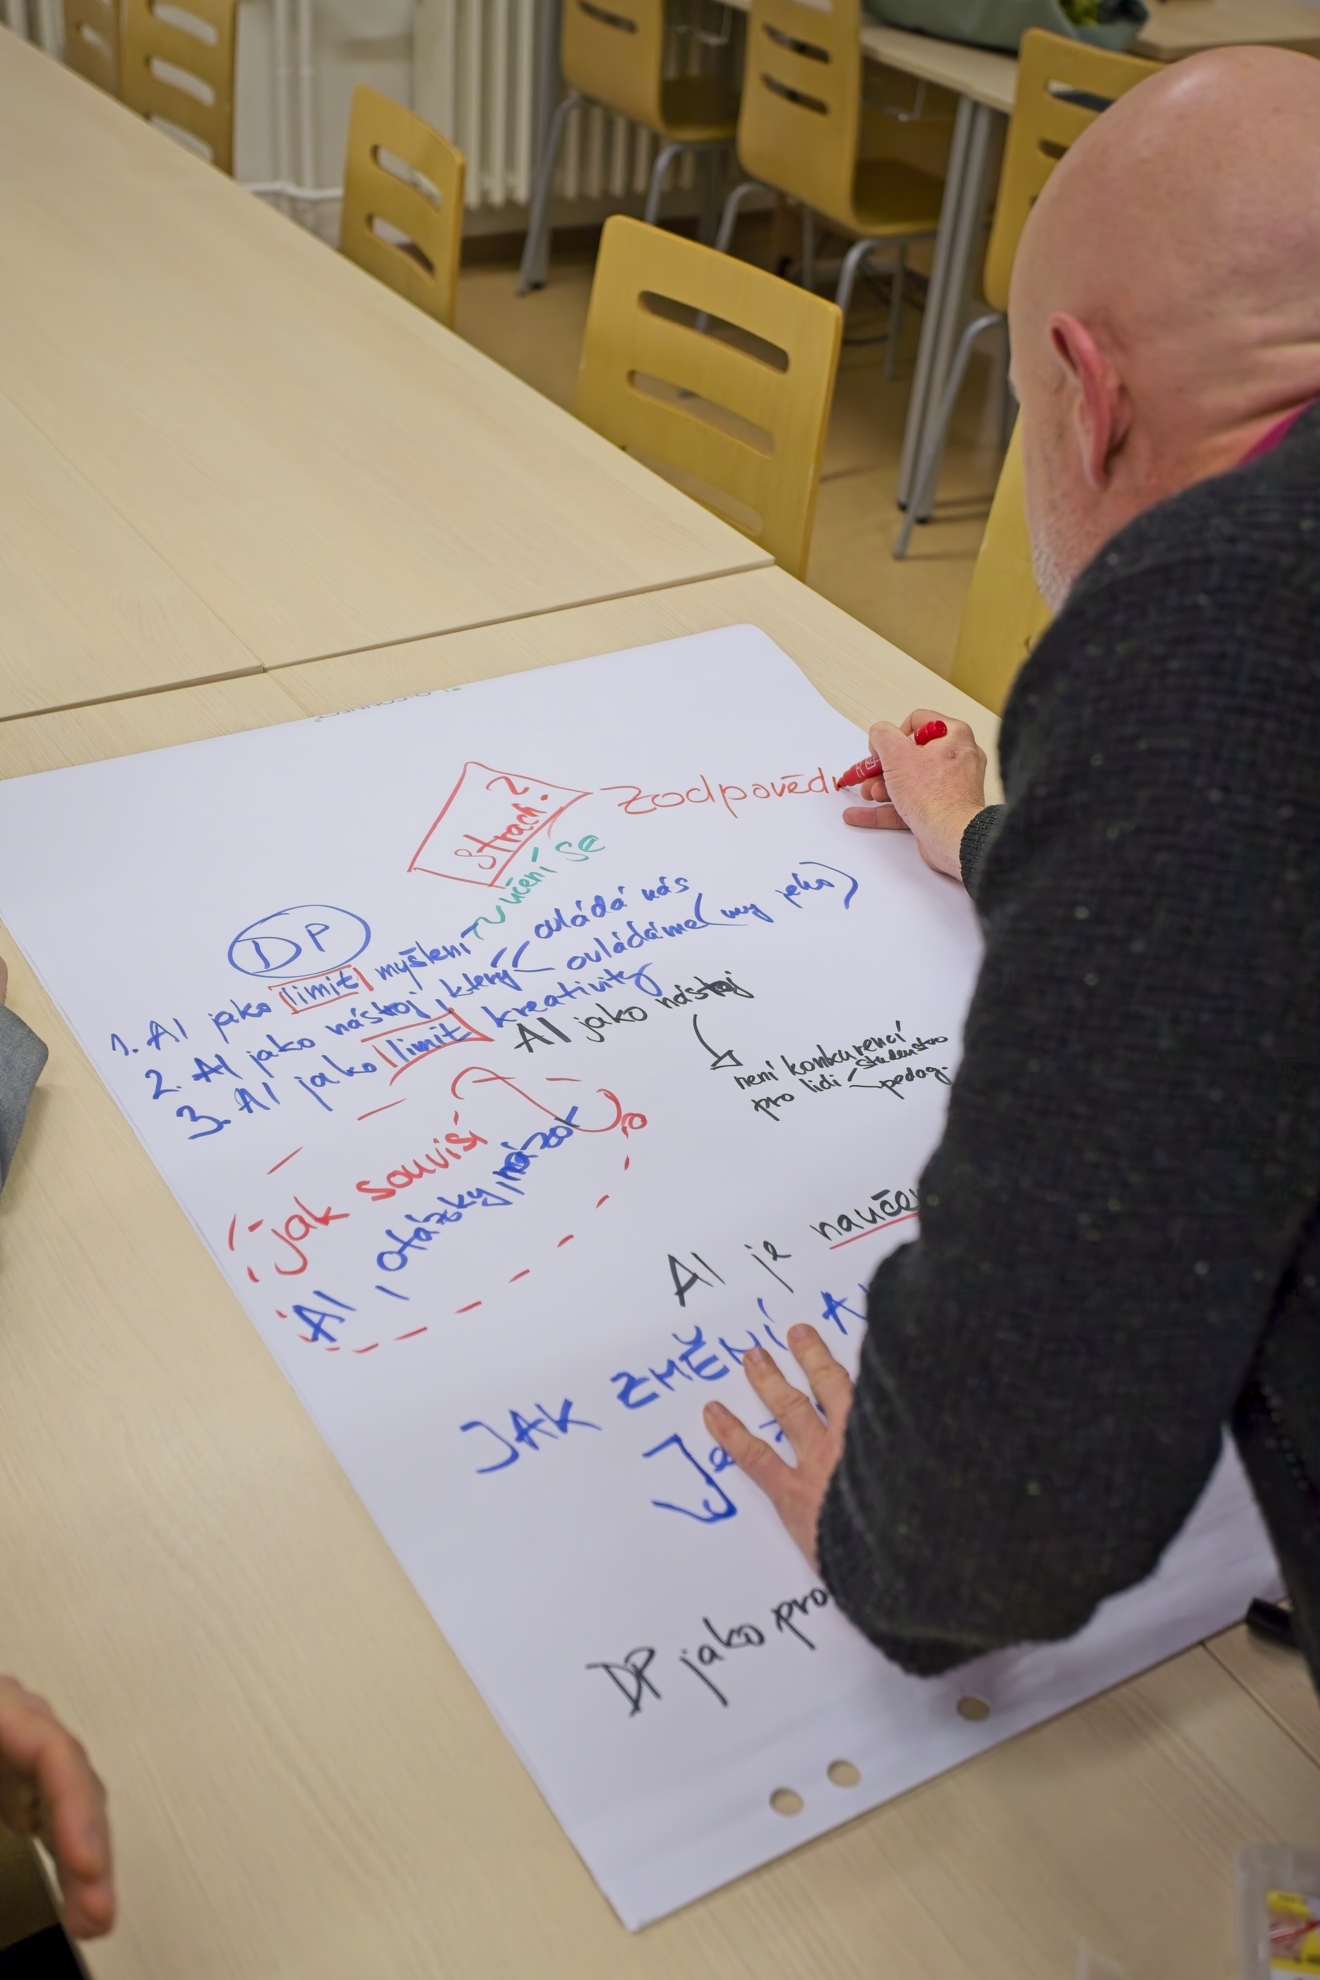 Strach?
Zodpovědn
učení se
DP
1. AI jako limit myšlení
2. AI jako nástroj, který
ovládá nás
ovládáme (my jeho)
3. AI jako limit kreativity
AI jako nástroj
není konkurencí
pro lidi
studentstvo
pedag.
jak souvisí
AI, otázky, názor
AI je naučen
JAK ZMĚNÍ A
Je
DP jako pro